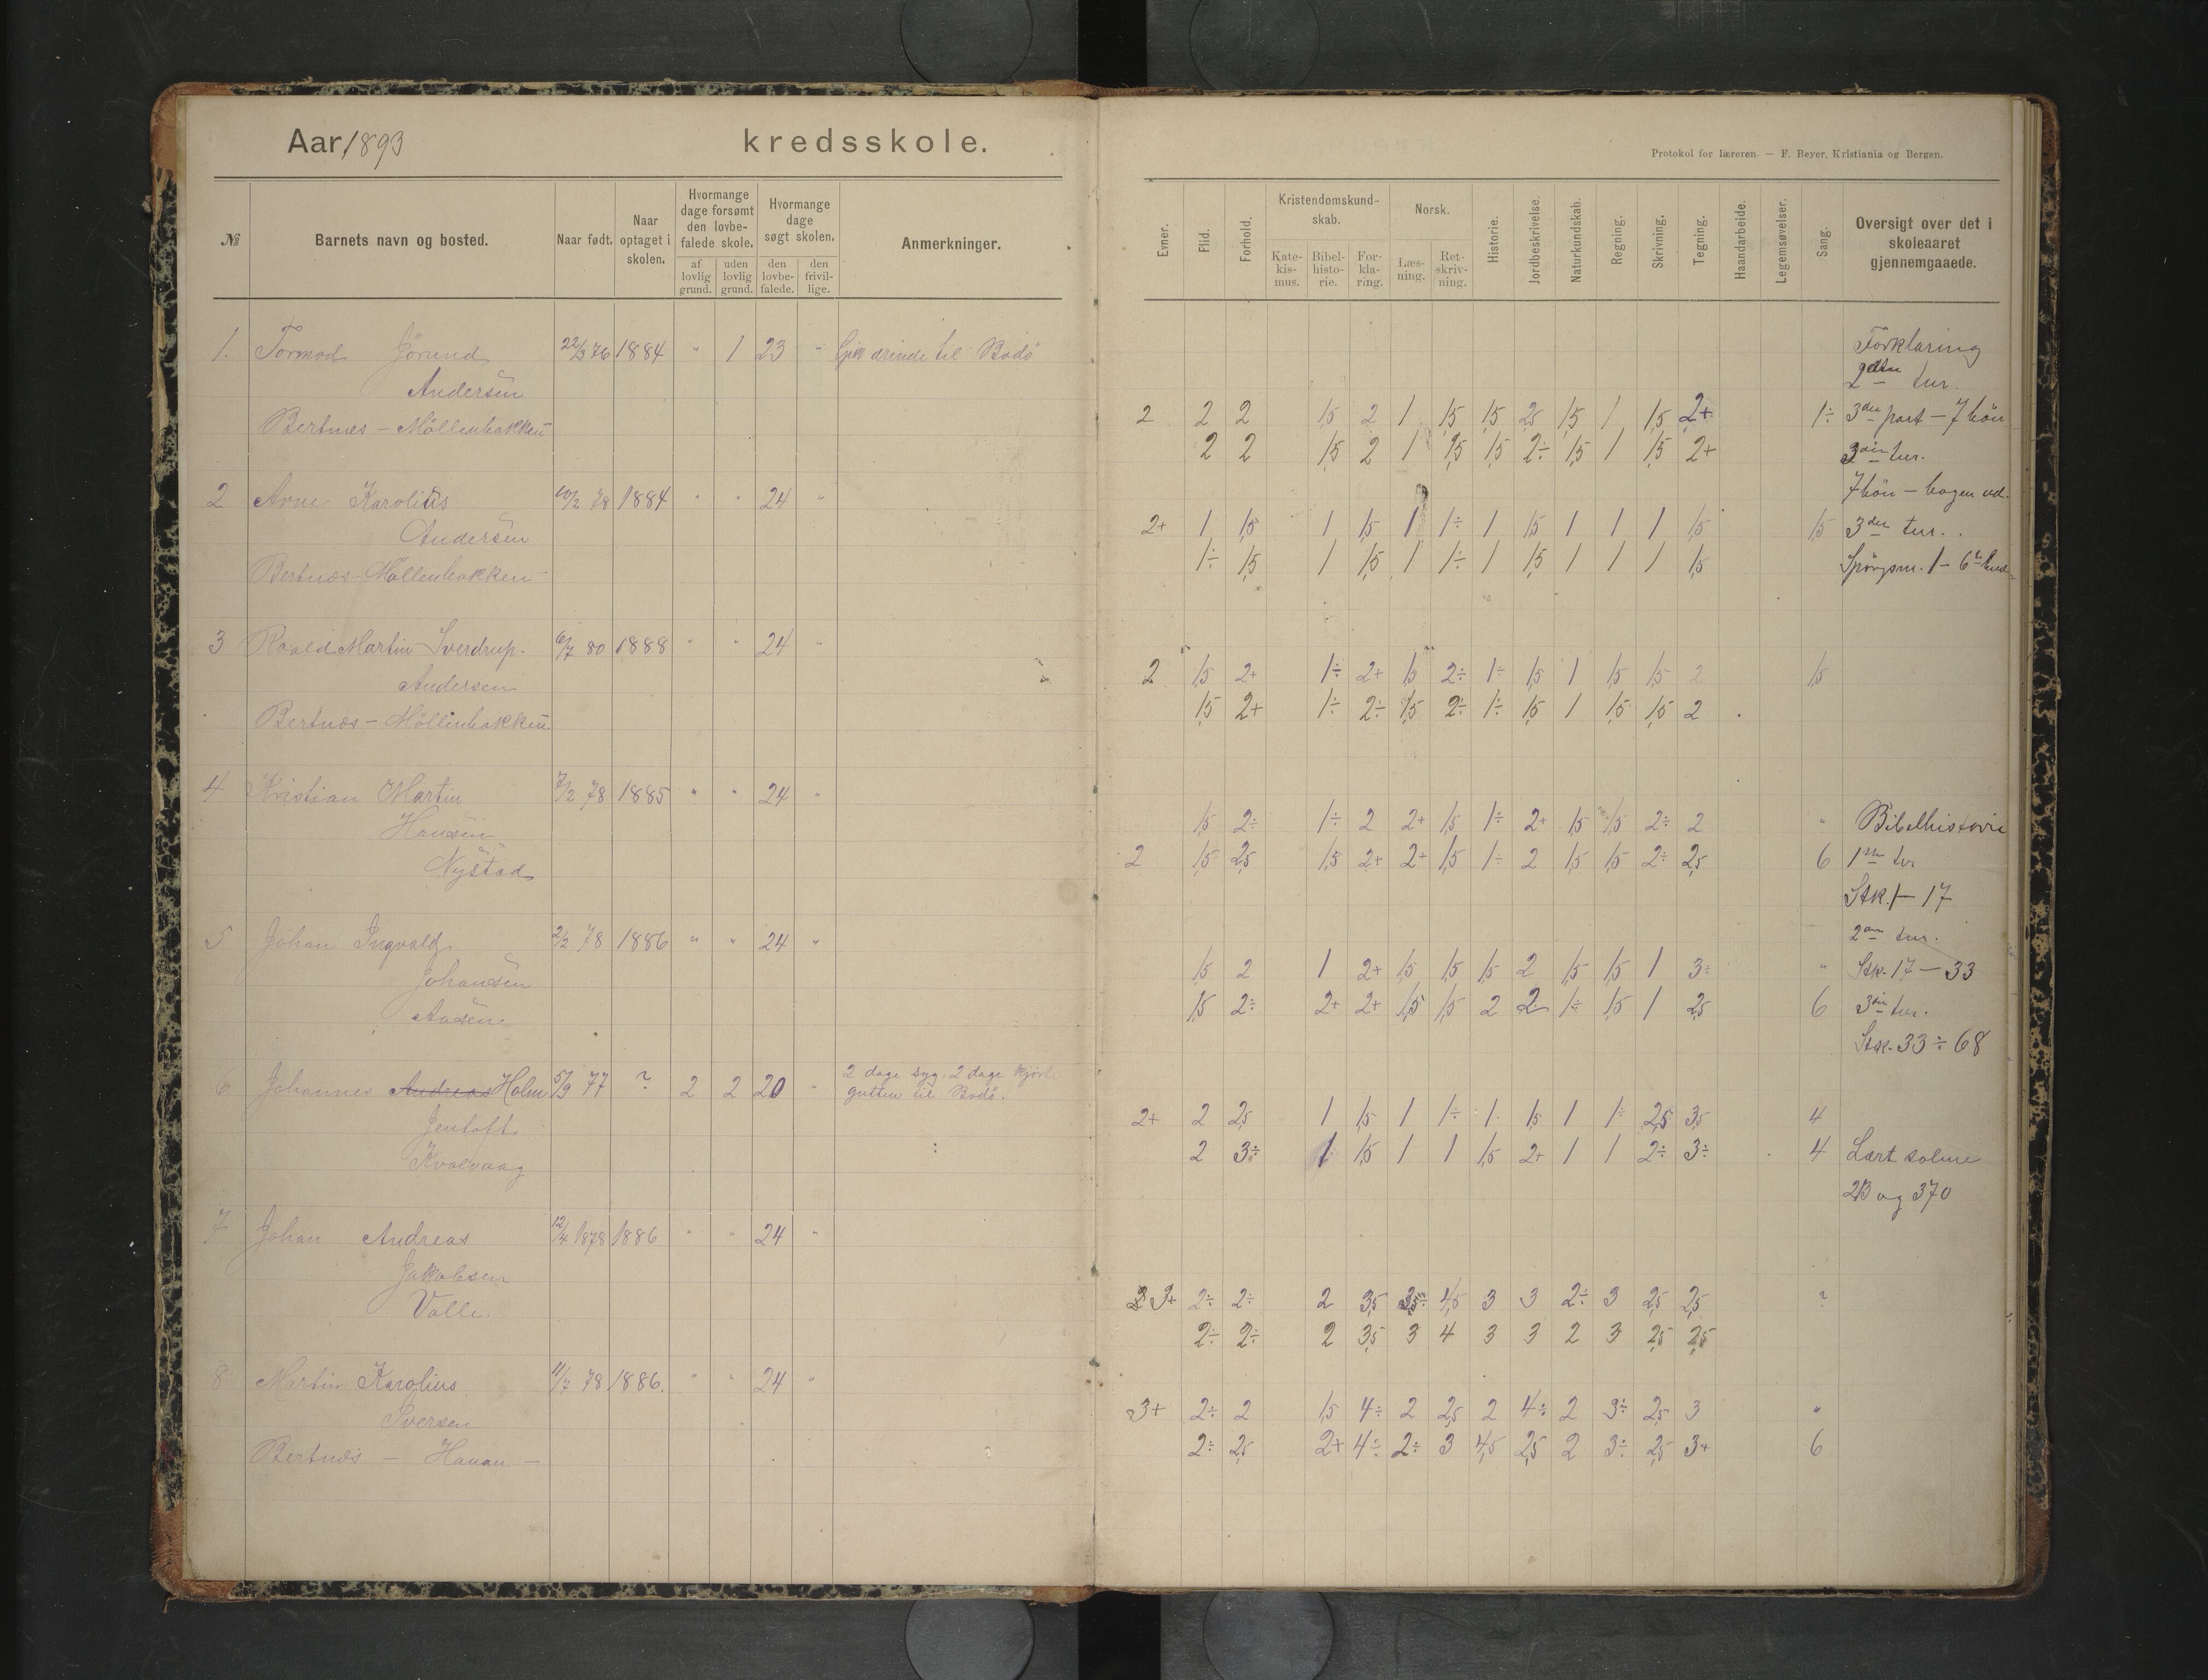 Aar 1893 kredsskole.
Protokol for læreren. — F. Beyer, Kristiania og Bergen.
№ Barnets navn og bosted. Naar født. Naar optaget i skolen. Hvormange dage forsømt den lovbefalede skole. af lovlig grund. uden lovlig grund. Hvormange dage søgt skolen. den lovbefalede. den frivillige. Anmerkninger.
Evner. Flid. Forhold. Kristendomskundskab. Katekismus. Bibelhistorie. Forklaring. Norsk. Læsning. Retskrivning. Historie. Jordbeskrivelse. Naturkundskab. Regning. Skrivning. Tegning. Haandarbeide. Legemsøvelser. Sang. Oversigt over det i skoleaaret gjennemgaaede.
1. Tormod Jörund 22/3 76 1884 " 1 23 " Gik ærinde til Bodö
Andersen
Bertnes - Möllenbakken
2 Arne Karolius 10/2 78 1884 " " 24 "
Andersen
Bertnes - Möllenbakken
3 Roald Martin Sverdrup. 6/7 80 1888 " " 24 "
Andersen
Bertnæs - Möllenbakken
4 Kristian Martin 7/2 78 1885 " " 24 "
Hansen
Nystad
5 Johan Ingvald 2/2 78 1886 " " 24 "
Johansen
Aasen
6 Johannes Andreas Holm 5/9 77 ? 2 2 20 " 2 dage syg. 2 dage kjörte
gutten til Bodö.
Jentoft
Kvalvaag
7 Johan Andreas 12/4 1878 1886 " " 24 "
Jakobsen
Valle.
8 Martin Karolius 11/7 78 1886. " " 24 "
Iversen
Bertnes - Haugan -
Forklaring
2den tur.
2 2 2 1,5 2 1 1,5 1,5 2,5 1,5 1 1,5 2+ 1÷ 3die part - 7 bön
2 2 1,5 2 1 1,5 1,5 2÷ 1,5 1 1,5 2+ 3die tur.
7 bön - bogen ud.
2+ 1 1,5 1 1,5 1 1÷ 1 1,5 1 1 1 1,5 1,5 3die tur.
1÷ 1,5 1 1,5 1 1÷ 1 1,5 1 1 1 1,5 Spörgsm. 1 - 6te bud
2 1,5 2+ 1÷ 2+ 1,5 2÷ 1÷ 1,5 1 1,5 1,5 2 1,5
1,5 2+ 1÷ 2÷ 1,5 2÷ 1÷ 1,5 1 1,5 1,5 2
1,5 2÷ 1÷ 2 2+ 1,5 1÷ 2+ 1,5 1,5 2÷ 2 " Bibelhistorie
2 1,5 2,5 1,5 2+ 2+ 1,5 1÷ 2 1,5 1,5 2÷ 2,5 6 1ste tur
Stk. 1 - 17
2den tur.
1,5 2 1 2+ 1,5 1,5 1,5 2 1,5 1,5 1 3÷ " Stk. 17 - 33
1,5 2÷ 2+ 2+ 1,5 1,5 2 2 1÷ 1,5 1 2,5 6 3die tur.
Stk. 33 ÷ 68
2+ 2 2,5 1 1,5 1 1÷ 1 1,5 1 1÷ 2,5 3,5 4
2 3÷ 1 1,5 1 1 1,5 2+ 1 1 2÷ 3÷ 4 Lært salme
213 og 370
3+ 2÷ 2÷ 2 3,5 4,5 3 3 2÷ 3 2,5 2,5 ?
2÷ 2÷ 2 3,5 3 4 3 3 2 3 2,5 2,5
3+ 2÷ 2 1,5 4÷ 2 2,5 2 4÷ 2 3÷ 2,5 3 "
2÷ 2,5 2+ 4÷ 2÷ 3 4,5 2,5 2 3÷ 2,5 3+ 6